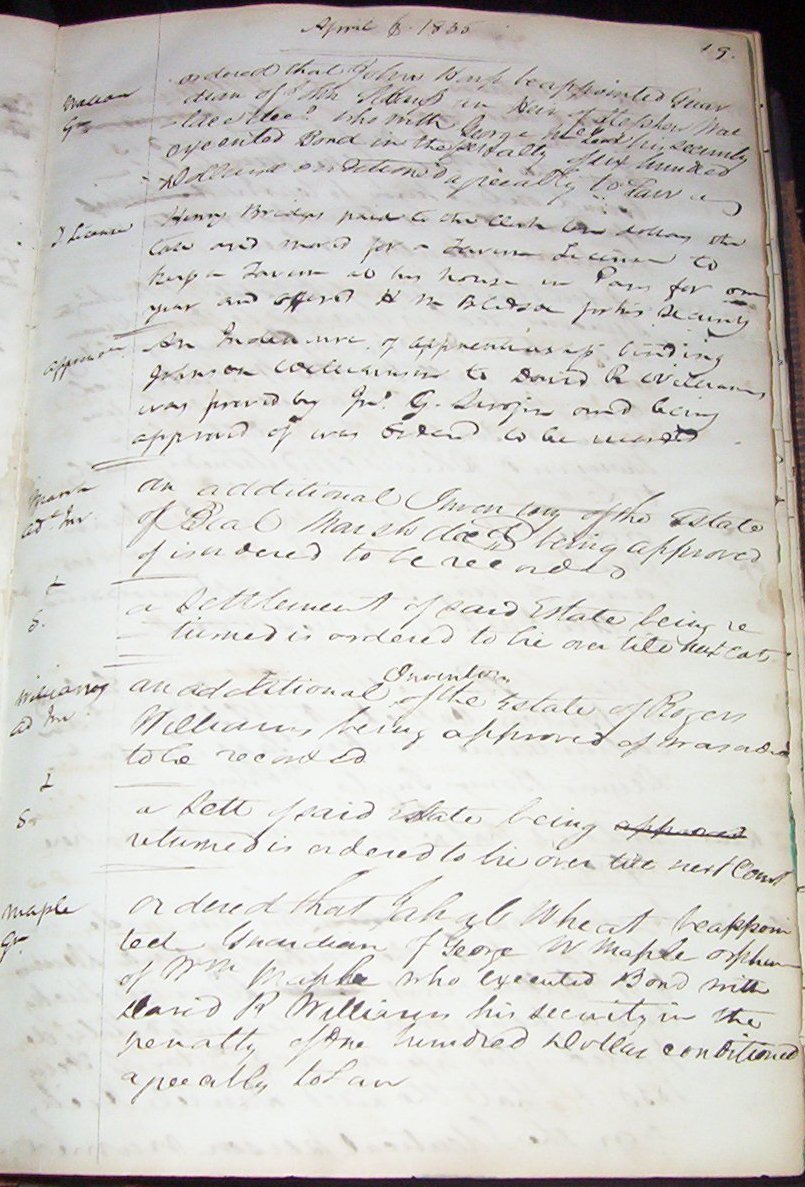 April 6 1835
19.
ordered that John be appointed Guar
Gn
dian of John in Heir of Stephen
decd who with George his security
executed Bond in the penalty of six hundred
Dollars conditioned agreeably to Law
T License
Henry Bridges paid to the Clerk ten dollars the
tax and moved for a Tavern License to
keep a Tavern at his house in Paris for one
year and offered H M Bledsoe for his security
An Indenture of apprenticeship binding
Johnson Williamson to David R Williams
was proved by Jno. G. and being
approved of was ordered to be recorded
Marsh
ad Inv
an additional Inventory of the Estate
of Beal Marsh decd being approved
of is ordered to be recorded
S.
a Settlement of said Estate being re
turned is ordered to lie over till next Cot
Williams
ad Inv
an additional Inventory of the Estate of Roger
Williams being approved of was
to be recorded
S
a Sett of said Estate being approved
returned is ordered to lie over till next Court
Maple
Gn
ordered that Wheat be appoin
ted Guardian of George W Maple orphan
of Wm Maple who executed Bond with
David R Williams his security in the
penalty of One hundred Dollars conditioned
agreeably to Law